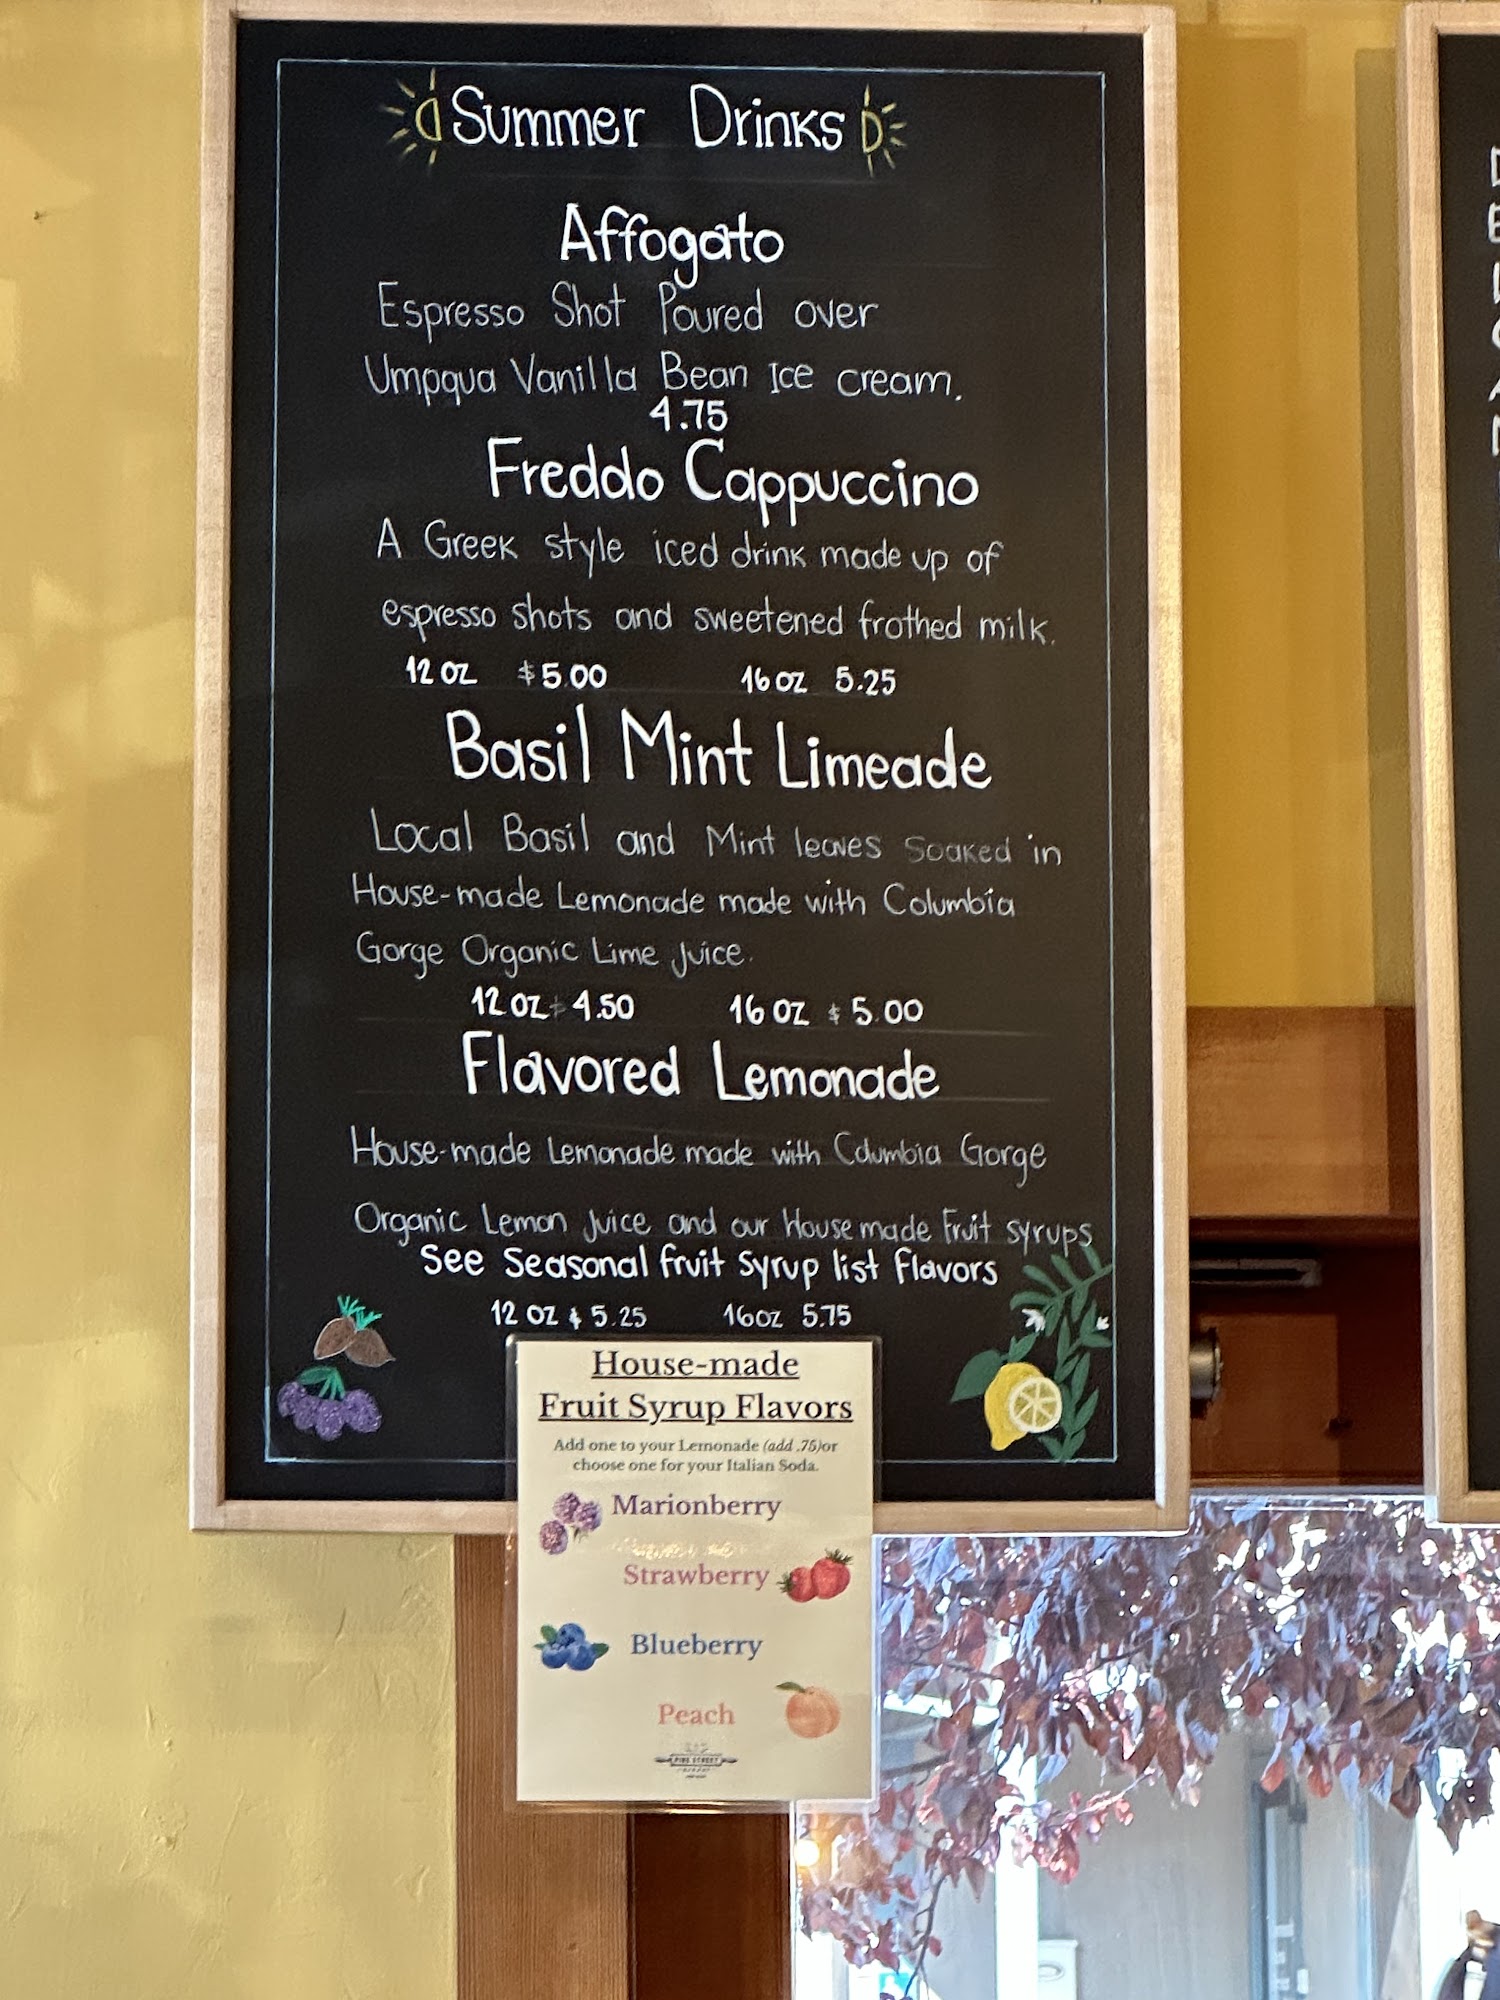 Summer Drinks
Affogato
Espresso Shot Poured over
Umpqua Vanilla Bean Ice cream.
4.75
Freddo Cappuccino
A Greek style iced drink made up of
espresso shots and sweetened frothed milk.
12 oz $5.00 16 oz 5.25
Basil Mint Limeade
Local Basil and Mint leaves Soaked in
House-made Lemonade made with Columbia
Gorge Organic Lime Juice.
12 oz $ 4.50 16 oz $ 5.00
Flavored Lemonade
House-made Lemonade made with Columbia Gorge
Organic Lemon Juice and our House made Fruit syrups
See Seasonal fruit syrup list flavors
12 oz $ 5.25 16oz 5.75
House-made
Fruit Syrup Flavors
Add one to your Lemonade (add .75)or
choose one for your Italian Soda.
Marionberry
Strawberry
Blueberry
Peach
PINE STREET